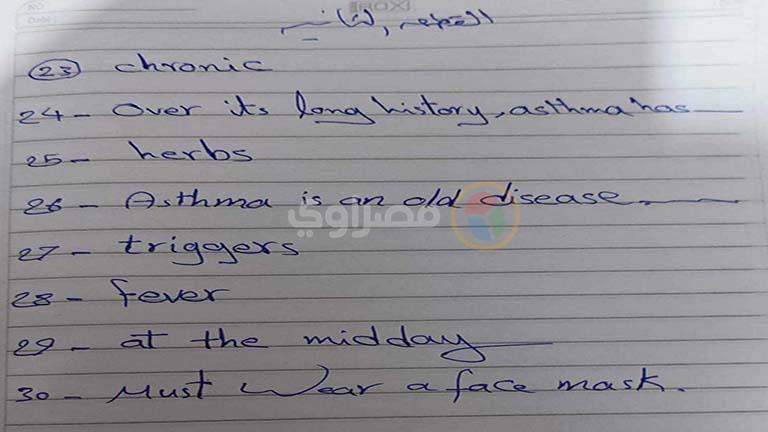 القطعه الثانيه
23 chronic
24- Over its long history, asthma has
25- herbs
26- Asthma is an old disease.
مصراوي
27- triggers
28- fever
29- at the midday
30- Must Wear a face mask.